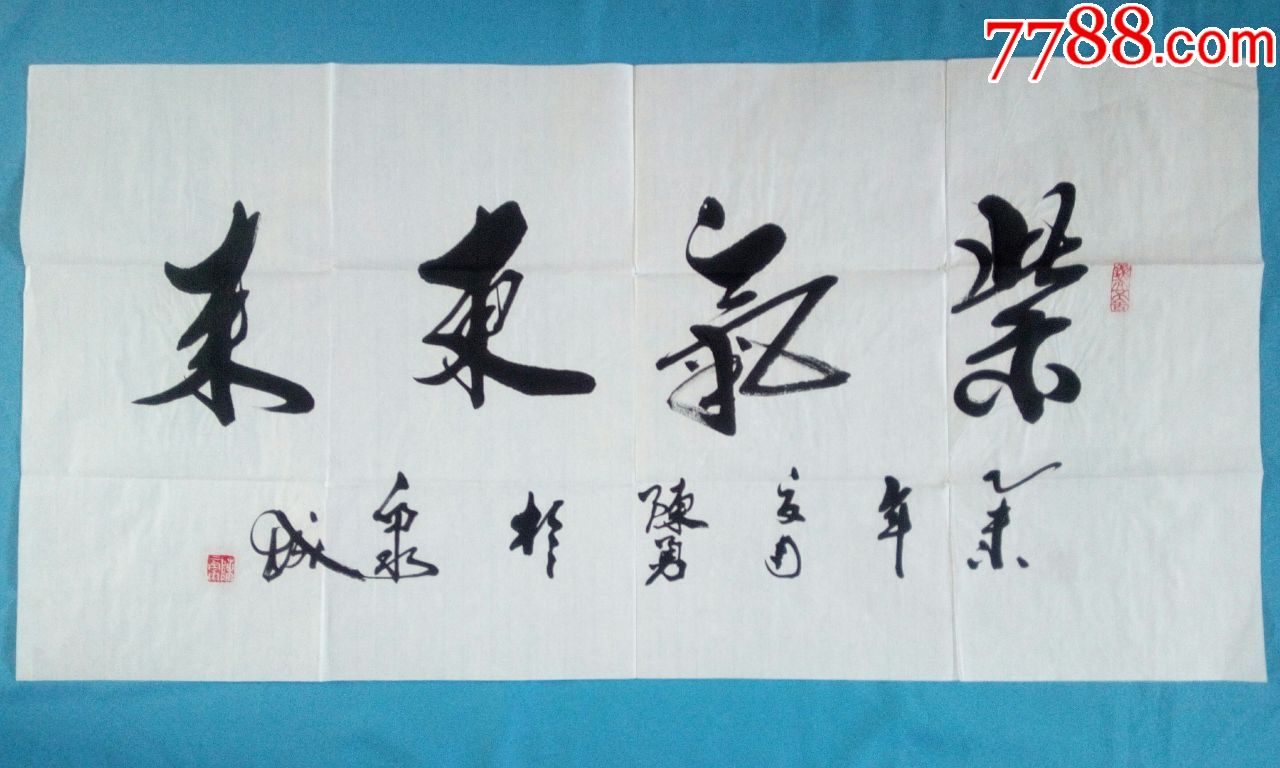 7788.com
紫氣東来
乙未年夏月陳勇於泉城